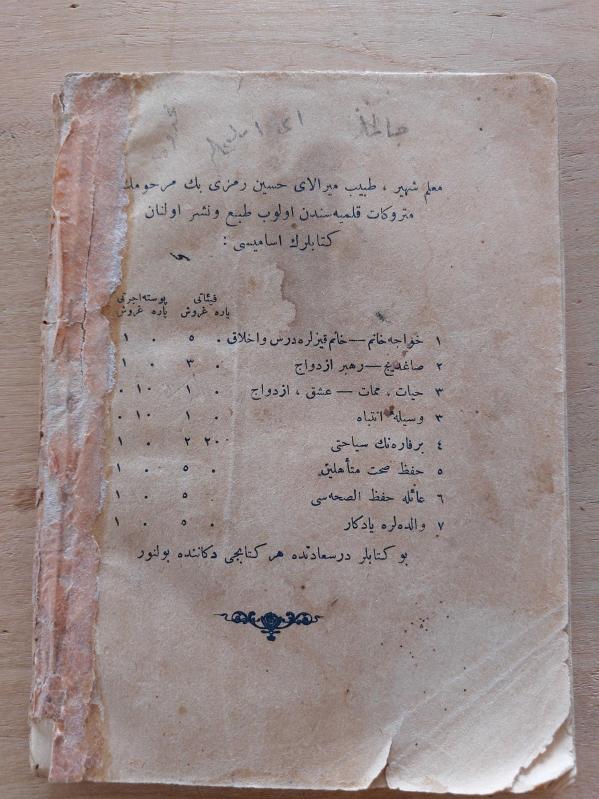 معلم شهير ، طبيب ميرالاى حسين رمزى بك مرحومك
متروكات قلميه‌سندن اولوب طبع ونشر اولنان
كتابلرك اساميسى :
فيئاتى پوسته اجرتى
پاره غروش پاره غروش
١ خواجه خانم — خانم قيزلره درس واخلاق ٠ ٥ ٠ ١
٢ صاغديج — رهبر ازدواج ٠ ٣ ٠ ١
٣ حيات ، ممات — عشق ، ازدواج ٠ ١ ١٠ ٠
٣ وسيلۀ انتباه ٠ ١ ١٠ ٠
٤ برفاره‌نك سياحتى ٢٠ ٢ ٠ ١
٥ حفظ صحت متأهلين ٠ ٥ ٠ ١
٦ عائله حفظ الصحه‌سى ٠ ٥ ٠ ١
٧ والده‌لره يادكار ٠ ٥ ٠ ١
بو كتابلر درسعادتده هر كتابجى دكاننده بولنور